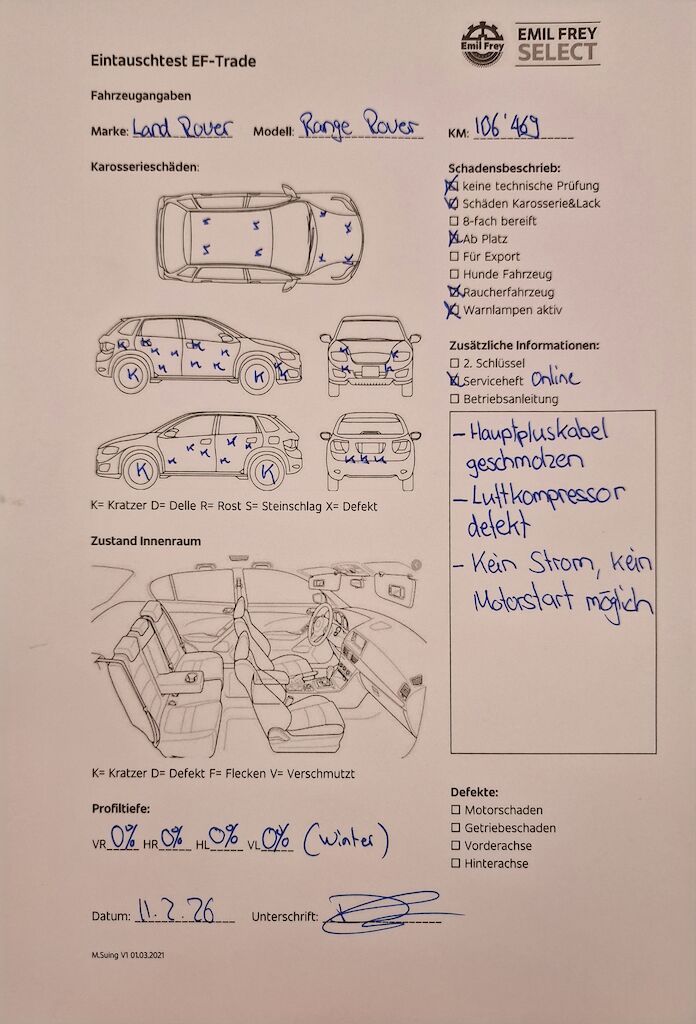 Emil Frey
EMIL FREY
SELECT
Eintauschtest EF-Trade
Fahrzeugangaben
Marke: Land Rover Modell: Range Rover KM: 106'469
Karosserieschäden:
Schadensbeschrieb:
keine technische Prüfung
Schäden Karosserie&Lack
8-fach bereift
Ab Platz
Für Export
Hunde Fahrzeug
Raucherfahrzeug
Warnlampen aktiv
K K K
K K K K
K K K K K K
K K K K K K
K K K K
K K K K K K
K K K K K
K= Kratzer D= Delle R= Rost S= Steinschlag X= Defekt
Zusätzliche Informationen:
2. Schlüssel
Serviceheft Online
Betriebsanleitung
- Hauptpluskabel
geschmolzen
- Luftkompressor
defekt
- Kein Strom, kein
Motorstart möglich
Zustand Innenraum
K= Kratzer D= Defekt F= Flecken V= Verschmutzt
Profiltiefe:
VR 0% HR 0% HL 0% VL 0% (Winter)
Defekte:
Motorschaden
Getriebeschaden
Vorderachse
Hinterachse
Datum: 11.2.26 Unterschrift:
M.Suing V1 01.03.2021